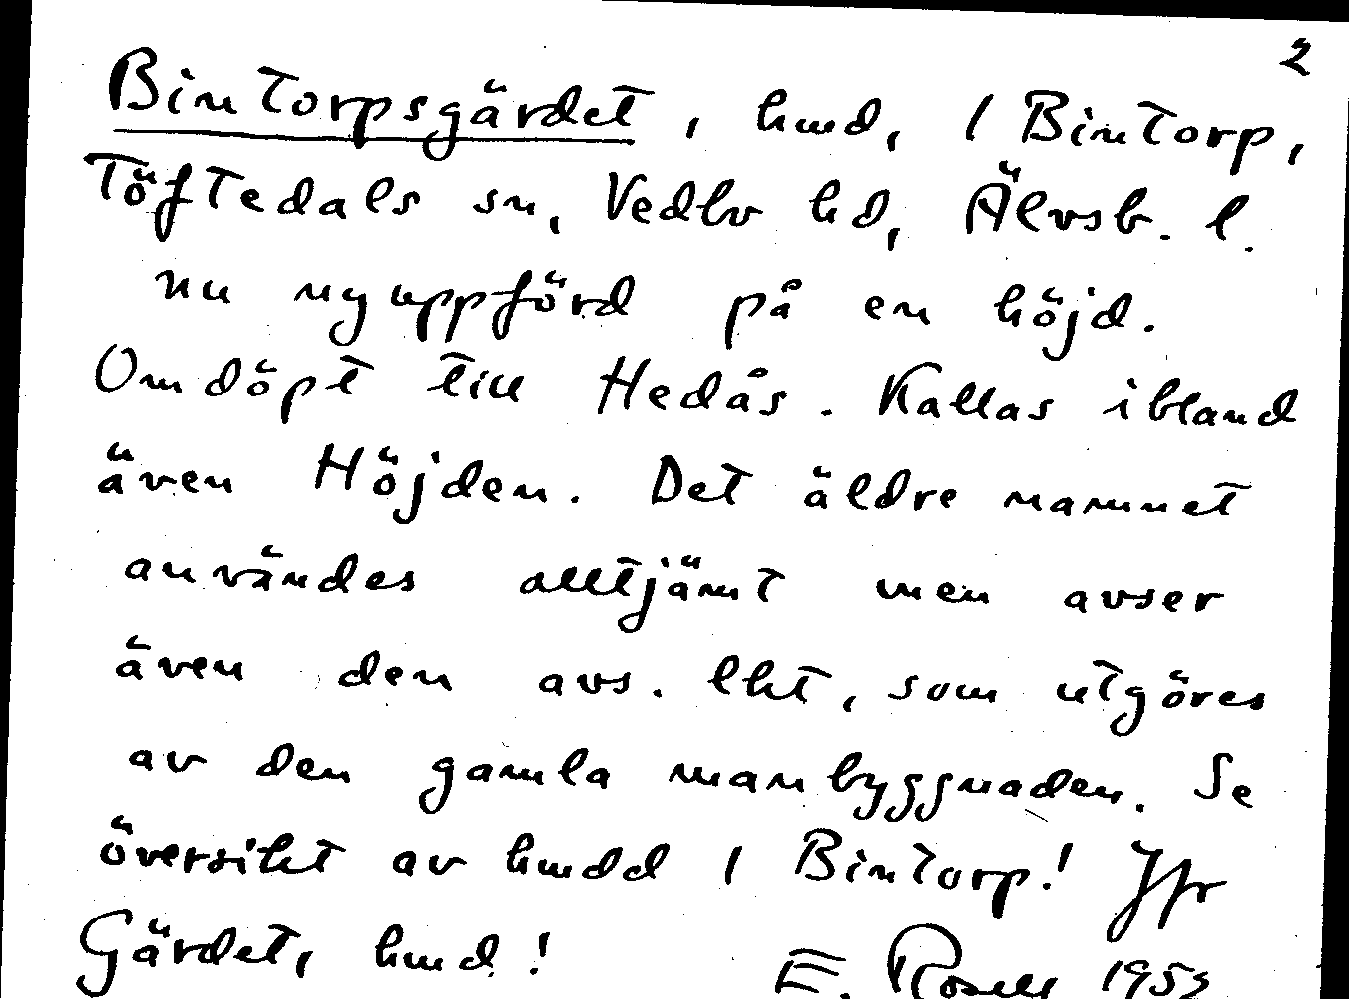 2
Bintorpsgärdet, hmd, / Bintorp,
Töftedals sn, Vedbo hd, Älvsb. l.
nu nyuppförd på en höjd.
Omdöpt till Hedås. Kallas ibland
även Höjden. Det äldre namnet
användes alltjämt men avser
även den avs. lht, som utgöres
av den gamla manbyggnaden. Se
översikt av hmdd / Bintorp! Jfr
Gärdet, hmd!
E. Rosell 1953